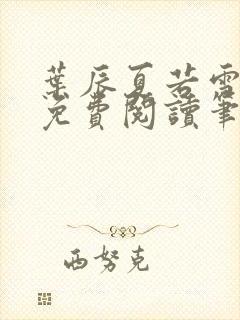 葉辰夏若雪
免費閱讀筆
西努克